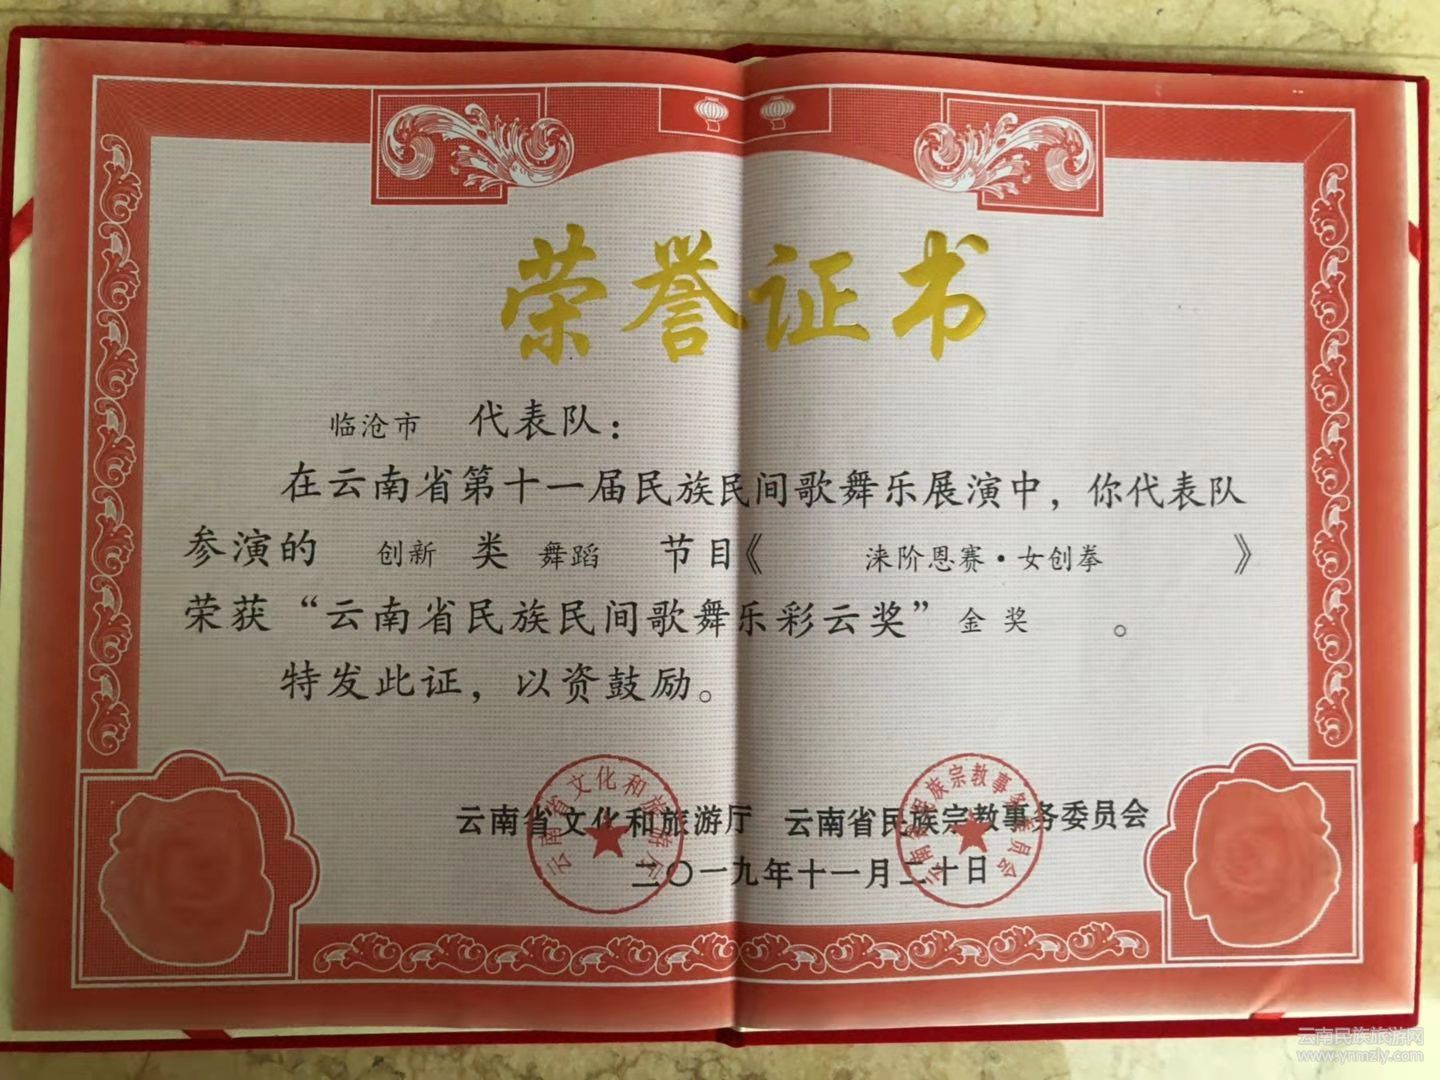 荣誉证书
临沧市 代表队：
在云南省第十一届民族民间歌舞乐展演中，你代表队
参演的 创新 类 舞蹈 节目《 涞阶恩赛·女创拳 》
荣获“云南省民族民间歌舞乐彩云奖”金奖。
特发此证，以资鼓励。
云南省文化和旅游厅 云南省民族宗教事务委员会
二〇一九年十一月二十日
云南省文化和旅游厅
云南省民族宗教事务委员会
云南民族旅游网
www.ynmzly.com